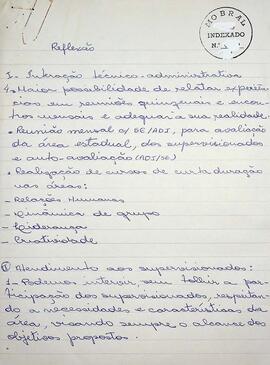 MOBRAL
INDEXADO
N.
Reflexão
I - Interação técnico-administrativa
4. Maior possibilidade de relatar experiên-
cias em reuniões quinzenais e encon-
tros mensais e adequar a sua realidade.
• Reunião mensal c/ SE/ADI, para avaliação
da área estadual, dos supervisionados
e auto-avaliação (ADI/SE)
• Realização de cursos de curta duração
nas áreas:
- Relações Humanas
- Dinâmica de grupo
- Liderança
- Criatividade
II Atendimento aos supervisionados:
1 - Podemos intervir, sem tolhir a par-
ticipação dos supervisionados, respeitan-
do a necessidades e características da
área, visando sempre o alcance dos
objetivos propostos.